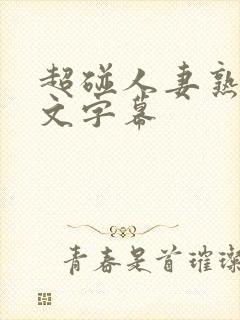 超碰人妻熟
文字幕
青春是首璀璨